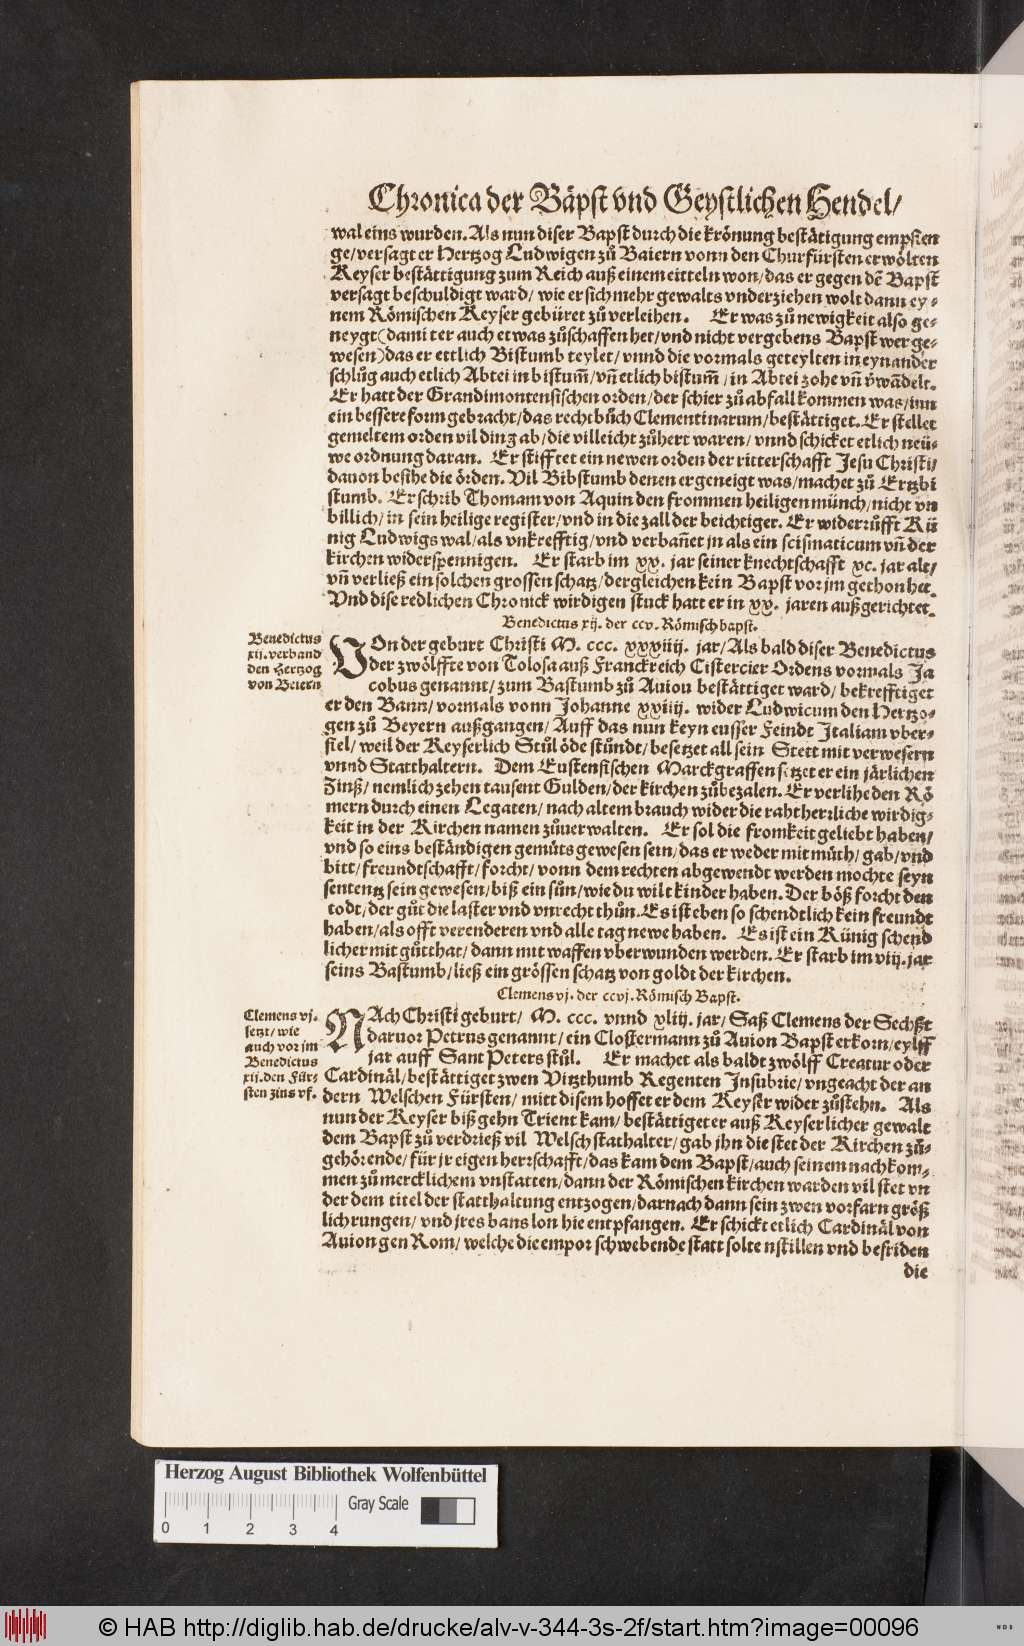 Chronica der Bäpst vnd Geystlichen Hendel/
wal eins wurden. Als nun diser Bapst durch die krönung bestätigung empfien
ge/versagt er Hertzog Ludwigen zů Baiern vonn den Churfürsten erwölten
Keyser bestättigung zum Reich auß einem eitteln won/das er gegen dē Bapst
versagt beschuldigt ward/ wie er sich mehr gewalts vnderziehen wolt dann ey-
nem Römischen Keyser gebüret zů verleihen. Er was zů newigkeit also ge-
neygt(damit er auch etwas zůschaffen het/vnd nicht vergebens Bapst wer ge-
wesen)das er ettlich Bistumb teylet/ vnnd die vormals geteylten in eynander
schlůg auch etlich Abtei in bistum̄/vn̄ etlich bistum̄/in Abtei zohe vn̄ v̄wādelt.
Er hatt der Grandimontensischen orden/der schier zů abfall kommen was/inn
ein bessere form gebracht/das recht bůch Clementinarum/bestättiget. Er stellet
gemeltem orden vil ding ab/die villeicht zůhert waren/ vnnd schicket etlich neü-
we ordnung daran. Er stifftet ein newen orden der ritterschafft Jesu Christi/
dauon besihe die örden. Vil Bibstumb denen er geneigt was/machet zů Ertzbi
stumb. Er schrib Thomam von Aquin den frommen heiligen münch/nicht vn
billich/in sein heilige register/vnd in die zall der beichtiger. Er widerrůfft Kü
nig Ludwigs wal/als vnkrefftig/vnd verban̄et jn als ein scismaticum vn̄ der
kirchen widerspennigen. Er starb im xx. jar seiner knechtschafft xc. jar alt/
vn̄ verließ ein solchen grossen schatz/dergleichen kein Bapst vor jm gethon het.
Vnd dise redlichen Chronick wirdigen stuck hatt er in xx. jaren außgerichtet.
Benedictus xij. der ccv. Römisch bapst.
Benedictus
xij. verband
den Hertzog
von Beiern
VOn der geburt Christi M. ccc. xxxiiij. jar/Als bald diser Benedictus
der zwölffte von Tolosa auß Franckreich Cistercier Ordens vormals Ja
cobus genannt/zum Bastumb zů Auiou bestättiget ward/ bekrefftiget
er den Bann/vormals vonn Johanne xxiiij. wider Ludwicum den Hertzo-
gen zů Beyern außgangen/Auff das nun keyn eusser Feindt Italiam vber-
fiel/weil der Keyserlich Stůl öde stůndt/besetzet all sein Stett mit verwesern
vnnd Statthaltern. Dem Eustensischen Marckgraffen setzet er ein järlichen
Zinß/nemlich zehen tausent Gulden/der kirchen zůbezalen. Er verlihe den Rö
mern durch einen Legaten/nach altem brauch wider die rahtherzliche wirdig-
keit in der Kirchen namen zůuerwalten. Er sol die fromkeit geliebt haben/
vnd so eins beständigen gemüts gewesen sein/das er weder mit müth/gab/vnd
bitt/freundtschafft/forcht/vonn dem rechten abgewendt werden mochte seyn
sententz sein gewesen/biß ein sün/wie du wilt kinder haben. Der böß forcht den
todt/der gůt die laster vnd vnrecht thůn. Es ist eben so schendtlich kein freundt
haben/als offt verenderen vnd alle tag newe haben. Es ist ein Künig schend
licher mit gůtthat/dann mit waffen vberwunden werden. Er starb im viij. jar
seins Bastumb/ließ ein grössen schatz von goldt der kirchen.
Clemens vj. der ccvj. Römisch Bapst.
Clemens vj.
setzt/wie
auch vor im
Benedictus
xij. den Für-
sten zins vf.
NAch Christi geburt/ M. ccc. vnnd xliij. jar/Saß Clemens der Sechßt
daruor Petrus genannt/ein Clostermann zů Auion Bapst erkorn/eylff
jar auff Sant Peters stůl. Er machet als baldt zwölff Creatur oder
Cardinäl/bestättiget zwen Vitzthumb Regenten Insubrie/vngeacht der an
dern Welschen Fürsten/mitt disem hoffet er dem Keyser wider zůstehn. Als
nun der Keyser biß gehn Trient kam/bestättiget er auß Keyserlicher gewalt
dem Bapst zů verdrieß vil Welsch stathalter/gab jhn die stet der Kirchen zů-
gehörende/für jr eigen herrschafft/das kam dem Bapst/auch seinem nachkom-
men zů mercklichem vnstatten/dann der Römischen kirchen warden vil stet vn
der dem titel der statthaltung entzogen/darnach dann sein zwen vorfarn größ
lich rungen/vnd jres bans lon hie entpfangen. Er schickt etlich Cardinäl von
Auion gen Rom/welche die empor schwebende statt solten stillen vnd befriden
die
Herzog August Bibliothek Wolfenbüttel
Gray Scale
0 1 2 3 4
© HAB http://diglib.hab.de/drucke/alv-v-344-3s-2f/start.htm?image=00096